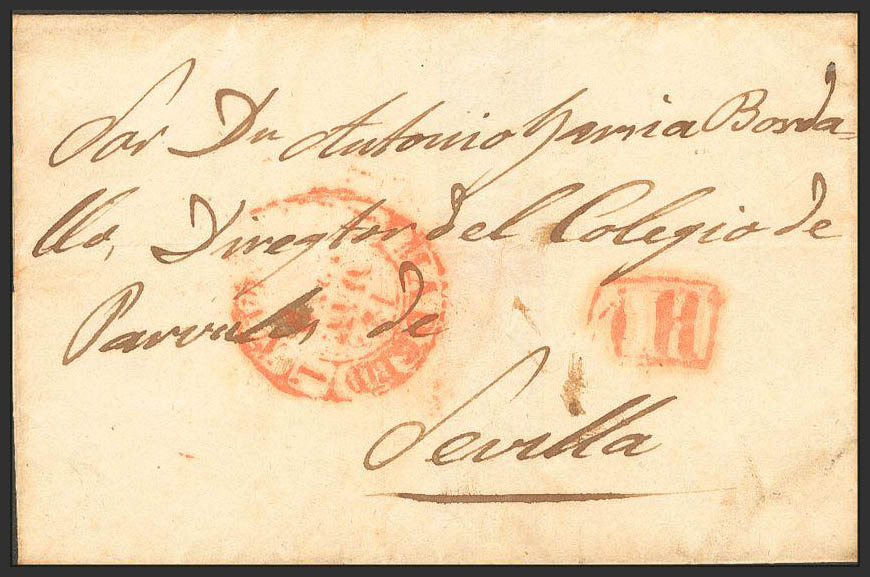 Sor Dn Antonio Garcia Borda=
llo, Diregtor del Colegio de
Parvulos de
Sevilla